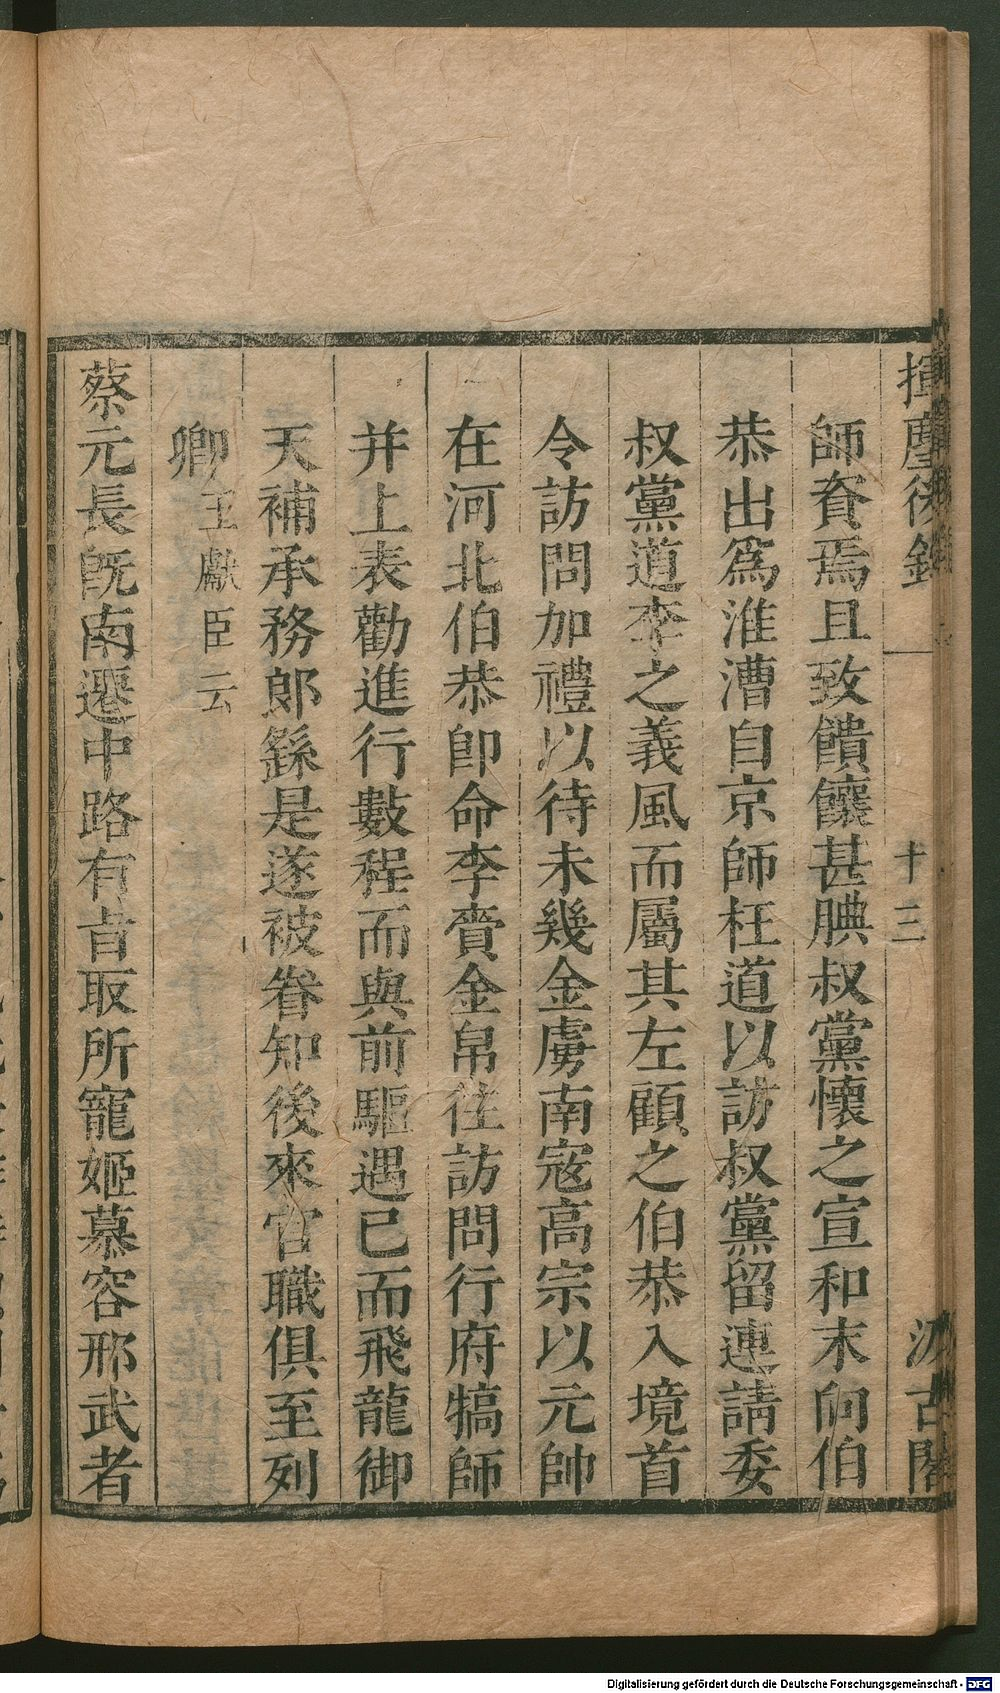 揮麈後錄
十三
汲古閣
師資焉且致饋饟甚腆叔黨懷之宣和末向伯
恭出爲淮漕自京師枉道以訪叔黨留連請委
叔黨道李之義風而屬其左顧之伯恭入境首
令訪問加禮以待未幾金虜南寇高宗以元帥
在河北伯恭卽命李賫金帛往訪問行府犒師
并上表勸進行數程而與前驅遇已而飛龍御
天補承務郎繇是遂被眷知後來官職俱至列
卿王獻臣云
蔡元長旣南遷中路有旨取所寵姬慕容邢武者
Digitalisierung gefördert durch die Deutsche Forschungsgemeinschaft - DFG